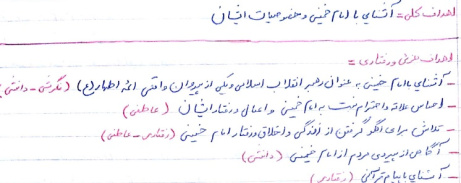 اهداف کلی = آشنایی با امام خمینی و خصوصیات ایشان
اهداف جزئی و رفتاری =
- آشنایی با امام خمینی به عنوان رهبر انقلاب اسلامی و یکی از پیروان واقعی ائمه اطهار (ع) (نگرشی - دانشی)
- احساس علاقه و احترام نسبت به امام خمینی و اعمال و رفتار ایشان (عاطفی)
- تلاش برای الگو گرفتن از زندگی و اخلاق و رفتار امام خمینی (رفتاری - عاطفی)
- آگاهی از پیروی مردم از امام خمینی (دانشی)
- آشنایی با پیام قرآنی (رفتاری)